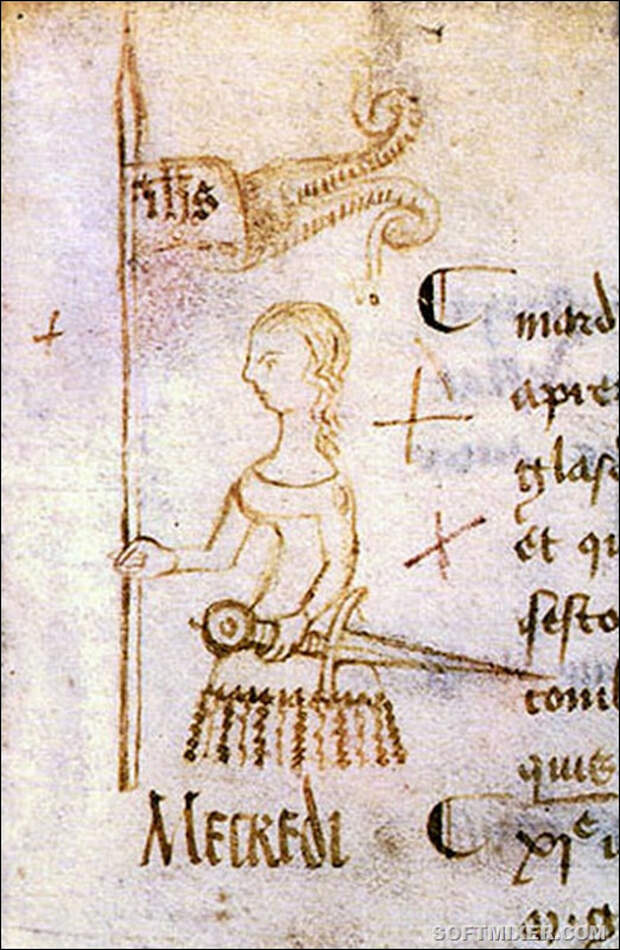 ihs
mard
apres
glas
et qu
sesto
comb
quis
Mecredi
SOFTMIXER.COM